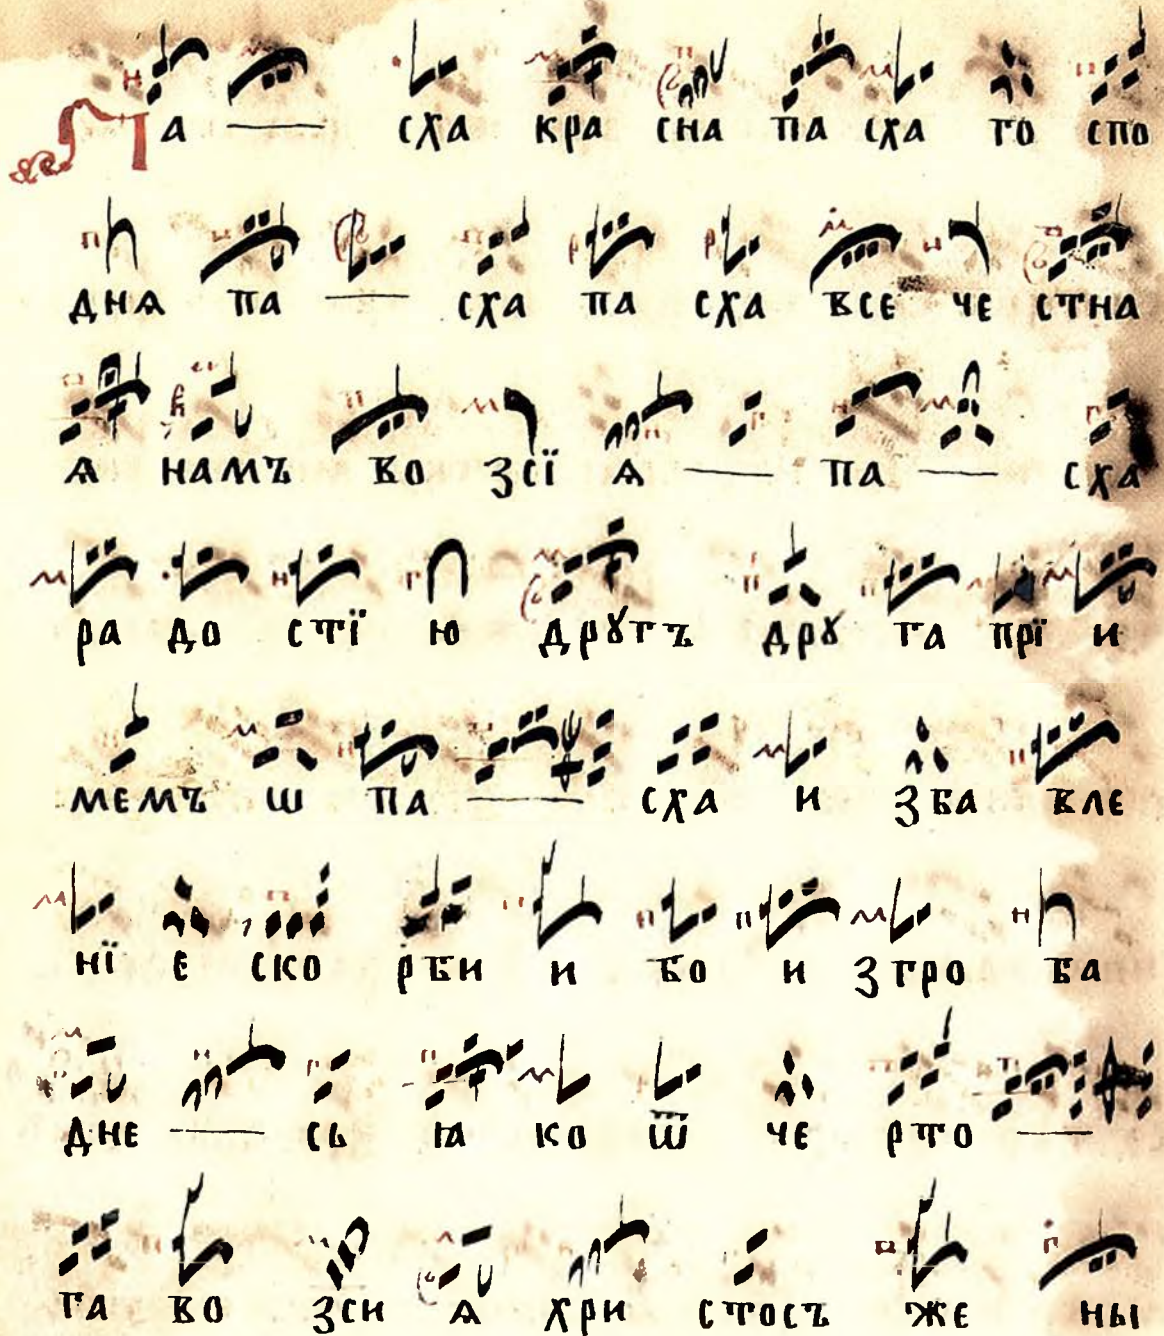 Па — сха кра сна па сха го спо
дня па — сха па сха все че стна
ѧ намъ во зсї ѧ — па — сха
ра до стї ю дрꙋгъ дрꙋ га прї и
мемъ ѡ па — сха и зба вле
нї е ско рби и бо и згро ба
дне — сь ꙗ ко ѿ че рто — 
га во зси ѧ хри стосъ же ны